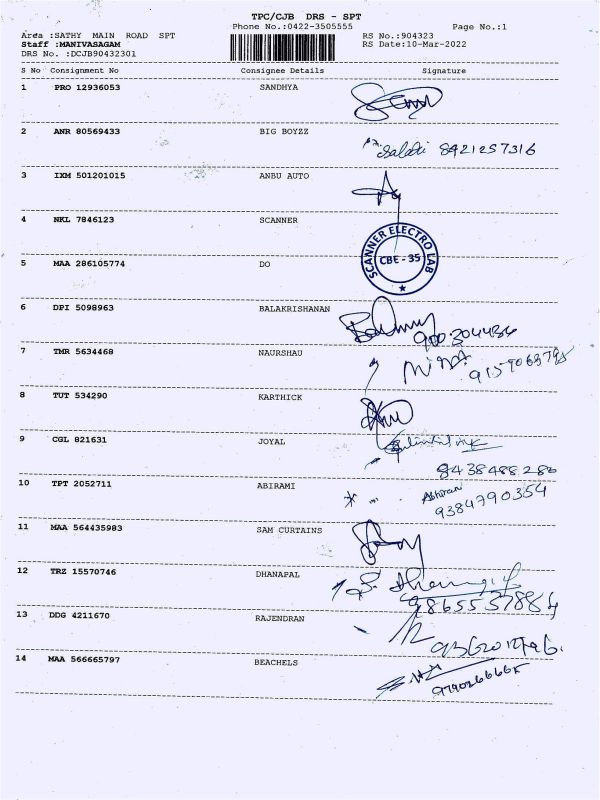 TPC/CJB DRS - SPT
Phone No.:0422-3505555 Page No.:1
Area :SATHY MAIN ROAD SPT RS No.:904323
Staff :MANIVASAGAM RS Date:10-Mar-2022
DRS No. :DCJB90432301
S No Consignment No Consignee Details Signature
1 PRO 12936053 SANDHYA
2 ANR 80569433 BIG BOYZZ
8421257316
3 IXM 501201015 ANBU AUTO
4 NKL 7846123 SCANNER
SCANNER ELECTRO LAB
CBE - 35
5 MAA 286105774 DO
6 DPI 5098963 BALAKRISHANAN
7 TMR 5634468 NAURSHAU
8 TUT 534290 KARTHICK
9 CGL 821631 JOYAL
9438488280
10 TPT 2052711 ABIRAMI
Abirami
9384790354
11 MAA 564435983 SAM CURTAINS
12 TRZ 15570746 DHANAPAL
9865537884
13 DDG 4211670 RAJENDRAN
14 MAA 566665797 BEACHELS